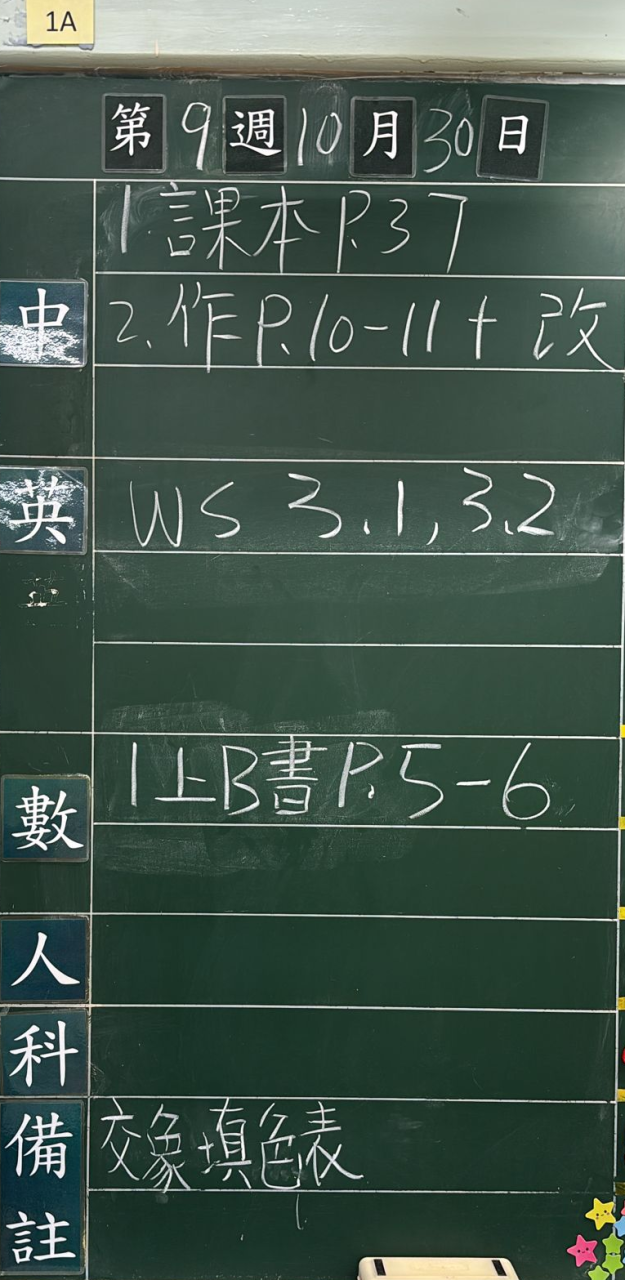 1A
第9週10月30日
1.課本P.37
中
2.作P.10-11+改
英
WS 3.1, 3.2
數
1上B書P.5-6
人
科
備註
交象填色表